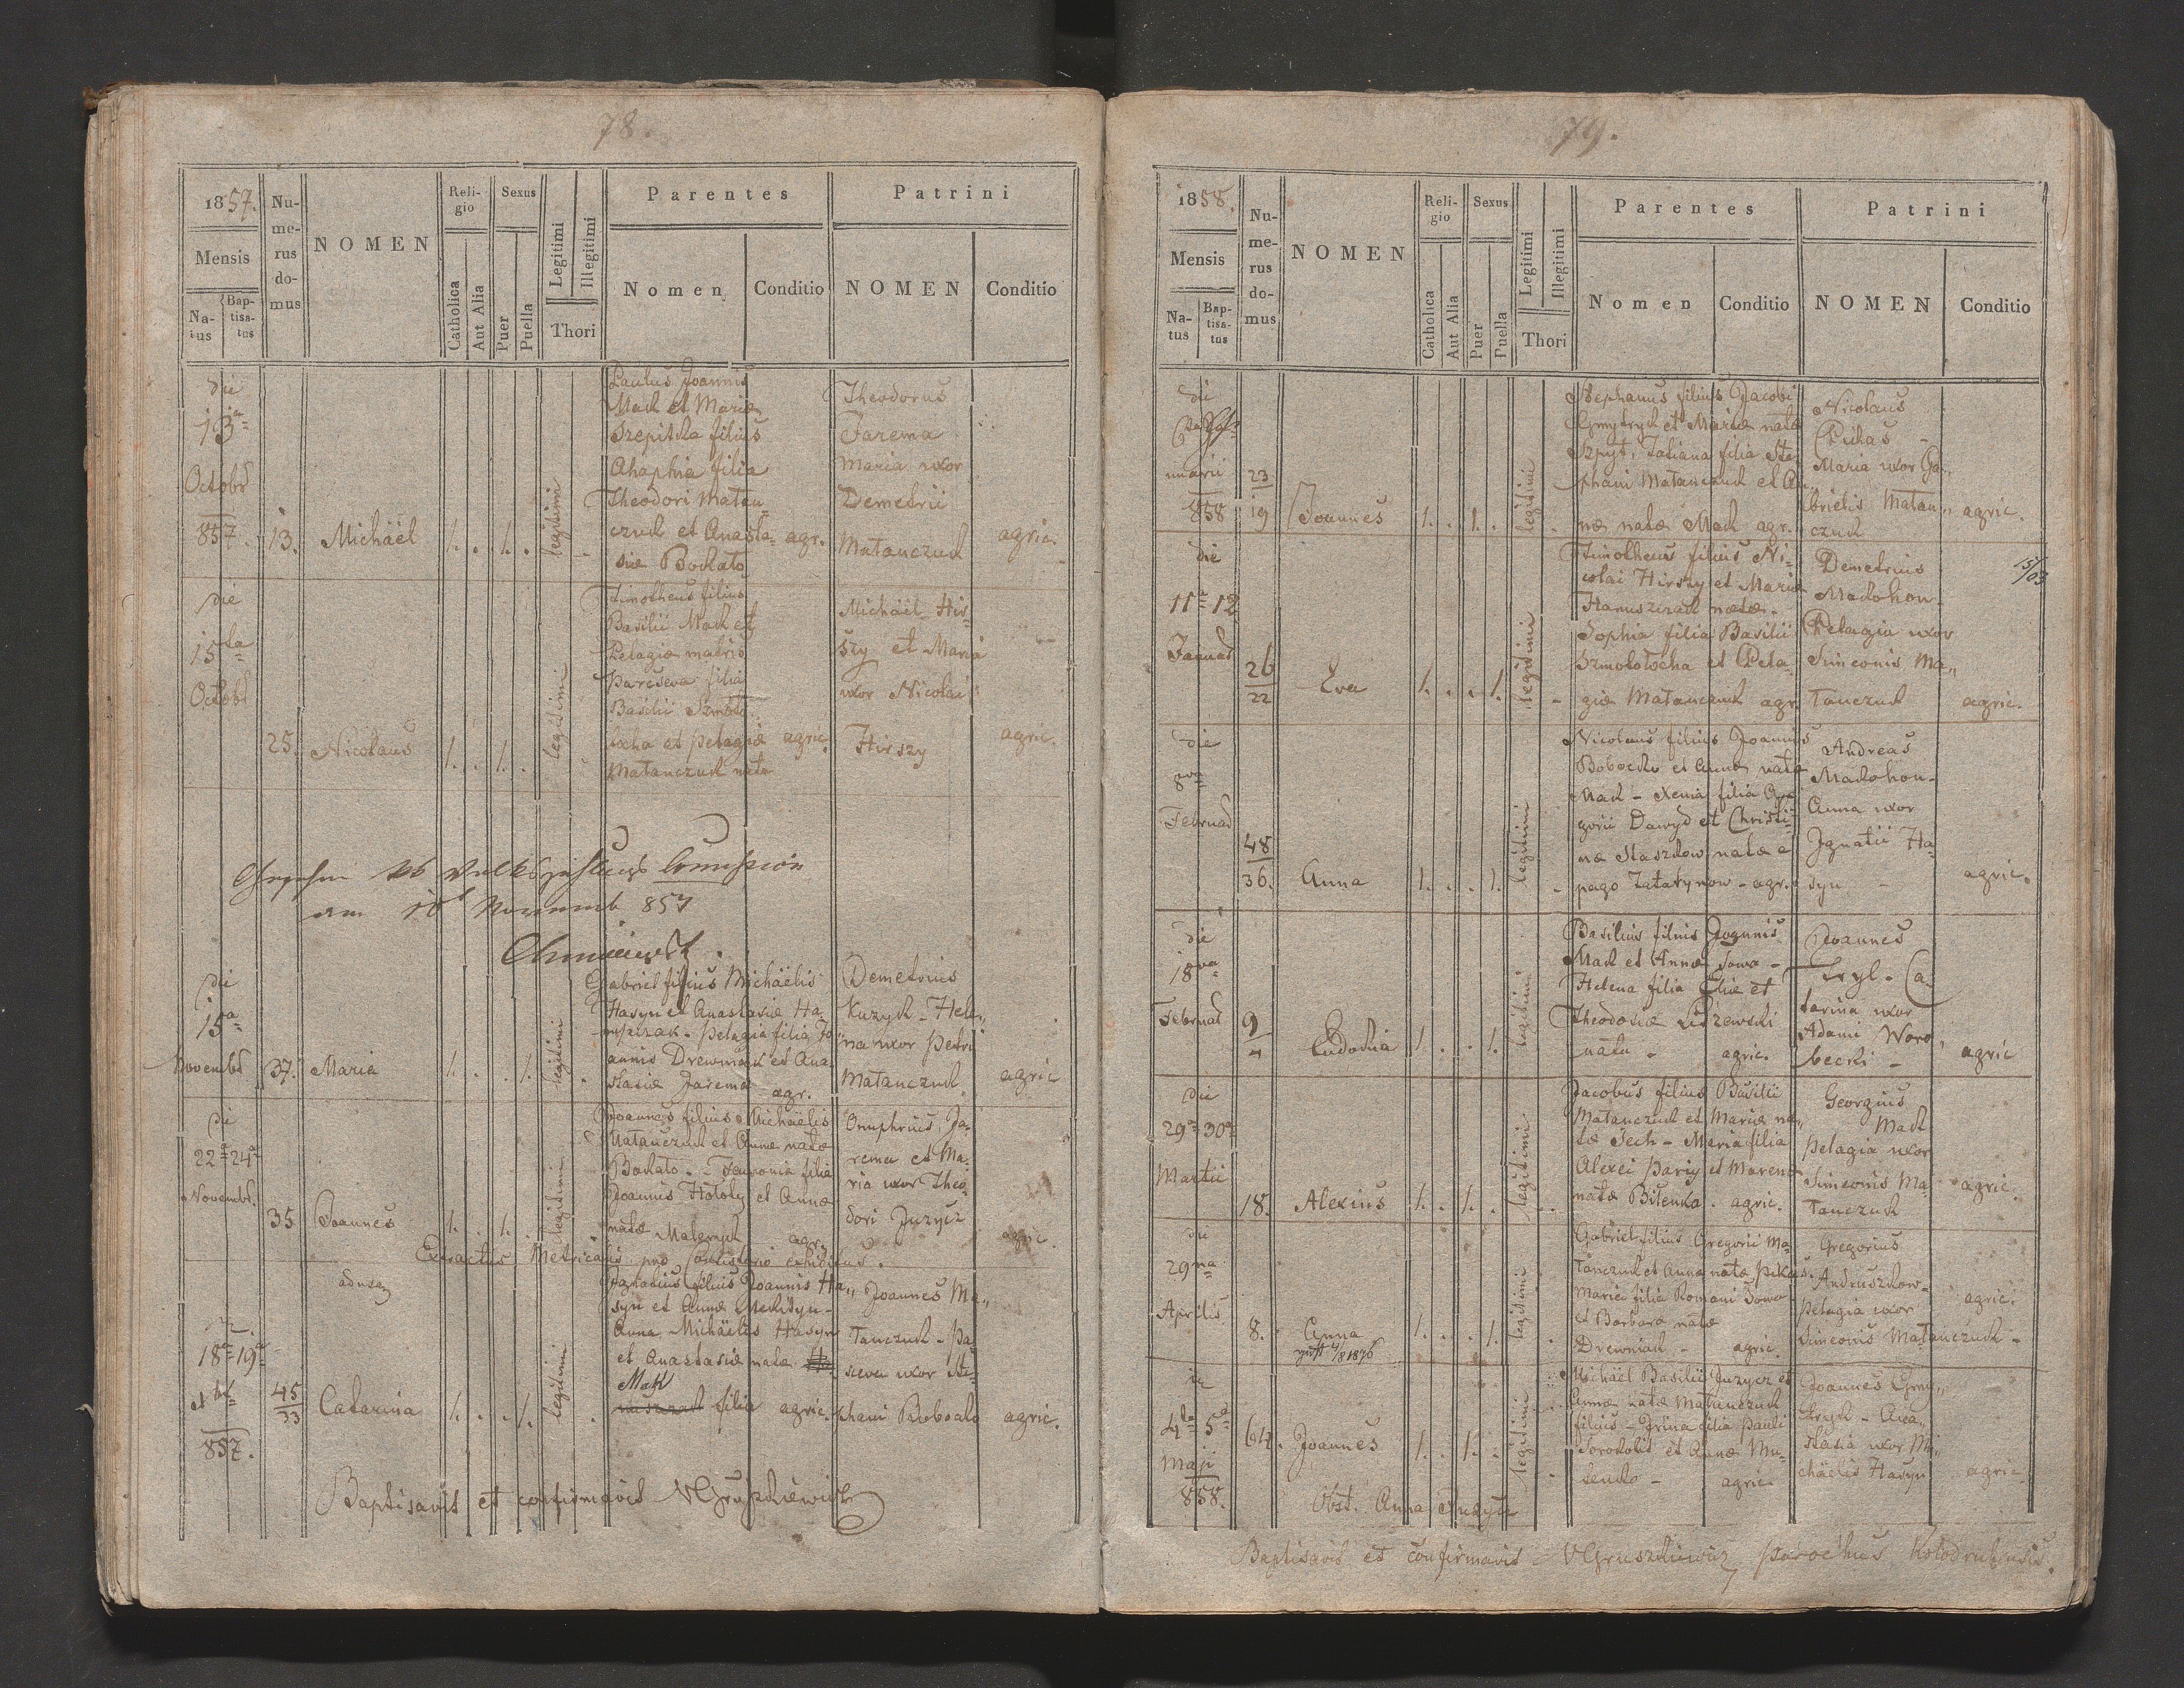 78.
1857.
Mensis
Na-
tus
Bap-
tisa-
tus
Nu-
me-
rus
do-
mus
NOMEN
Reli-
gio
Catholica
Aut Alia
Sexus
Puer
Puella
Legitimi
Illegitimi
Thori
Parentes
Nomen
Conditio
Patrini
NOMEN
Conditio
die
13a
Octobr
857.
13.
Michäel
1. . 1. .
legitimi
Paulus Joannis
Mack et Mariæ
Szepitka filius
Ahaphia filia
Theodori Matan-
czuk et Anasta-
siæ Bockato
agr.
Theodorus
Jarema
Maria uxor
Demetrii
Matanczuk
agric.
die
15ta
Octobr
25.
Nicolaus
1. . 1. .
legitimi
Timotheus filius
Basilii Mack et
Pelagiæ matris
Parasceva filia
Basilii
et Pelagiæ
Matanczuk nata
agric.
Michäel Hir-
szy et Maria
uxor Nicolai
Hirszy
agric.
am 10 Novemb 857
die
15a
Novembr
37.
Maria
1. . . 1.
legitimi
Gabriel filius Michäelis
Hasyn et Anastasiæ Ha-
Pelagia filia Jo-
annis Drewniak et Ana-
stasiæ Jarema
agr.
Demetrius
Kuzyk - Hele-
na uxor Petri
Matanczuk
agric
die
22a 24a
Novembr.
35
Joannes
1. . 1.
legitimi
Joannes filius Michäelis
Matanczuk et Annæ natæ
Bockato - filia
Joannis Hołoły et Annæ
natæ
agr.
Onuphrius Ja-
rema et Ma-
ria uxor Theo-
dori Juzycz
agric.
Extractus Metricalis pro Consistorio exhibitus.
18a 19a
857.
45
33
Catarina
1. . . 1.
legitimi
Ignatius filius Joannis Ha-
syn et Annæ
Anna Michäelis Hasyn
et Anastasiæ natæ
Mak
filia
agric.
Joannes Ma-
tanczuk - Pa-
sceva uxor Ste-
phani Bobocko
agric.
Baptisavit et confirmavit VGruszkiewicz
79.
1858.
Mensis
Na-
tus
Bap-
tisa-
tus
Nu-
me-
rus
do-
mus
NOMEN
Reli-
gio
Catholica
Aut Alia
Sexus
Puer
Puella
Legitimi
Illegitimi
Thori
Parentes
Nomen
Conditio
Patrini
NOMEN
Conditio
die
nuarii
858
23
19
Joannes
1. . 1. .
legitimi
Stephanus filius Jacobi
Gmytryk et Mariæ natæ
Szpyt, Tatiana filia Ste-
phani Matanczuk et An-
næ natæ Mack agr.
Nicolaus
Pikas -
Maria uxor Ga-
brielis Matan-
czuk
agric.
die
11a 12
Januar
26
22
Eva
1. . . 1.
legitimi
Timotheus filius Ni-
colai Hirszy et Mariæ
Hanuszczak natæ.
Sophia filia Basilii
Szmolocha et Pela-
giæ Matanczuk agr.
Demetrius
Mackohon
Pelagia uxor
Simeonis Ma-
tanczuk
agric.
15/03
die
8va
Februar
48
36.
Anna
1. . . 1.
legitimi
Nicolaus filius Joannis
Bobocko et Annæ natæ
Mack - Xenia filia Gre-
gorii Dawyd et Christi-
næ Staszkow natæ e
pago Tatarynow - agr.
Andreas
Mackohon-
Anna uxor
Ignatii Ha-
syn -
agric.
die
18va
Februar
9
4
Eudockia
1. . . 1.
legitimi
Basilius filius Joannis
Mack et Annæ Sowa -
Helena filia Eliæ et
Theodosiæ
nata - agric.
Joannes
Ca-
tarina uxor
Adami Woro-
becki -
agric
die
29a 30a
Martii
18.
Alexius
1. . 1. .
legitimi
Jacobus filius Basilii
Matanczuk et Mariæ na-
tæ Sech - Maria filia
Alexei Pariy et Marenæ
natæ Bilenka. agric.
Georgius
Mack
Pelagia uxor
Simeonis Ma-
tanczuk
agric.
die
29na
Aprilis
8.
Anna
4/8 1876
1. . . 1.
legitimi
Gabriel filius Gregorii Ma-
tanczuk et Anna natæ Pikas.
Maria filia Romani Sowa
et Barbara natæ
Drewniak - agric.
Gregorius
Andruszkow-
Pelagia uxor
Simeonis Matanczuk -
agric.
die
4ta 5a
Maji
858.
64.
Joannes
1. . 1. .
legitimi
Michäel Basilii Juzycz et
Annæ natæ Matanczuk
filius - Irina filia Pauli
Sorokolit et Annæ Mu-
senko - agric.
Joannes Gmy-
tryk - Ana-
stasia uxor Mi-
chäelis Hasyn
agric.
Obst. Anna Juzycz
Baptisavit et confirmavit VGruszkiewicz parochus Kołodruhensis.